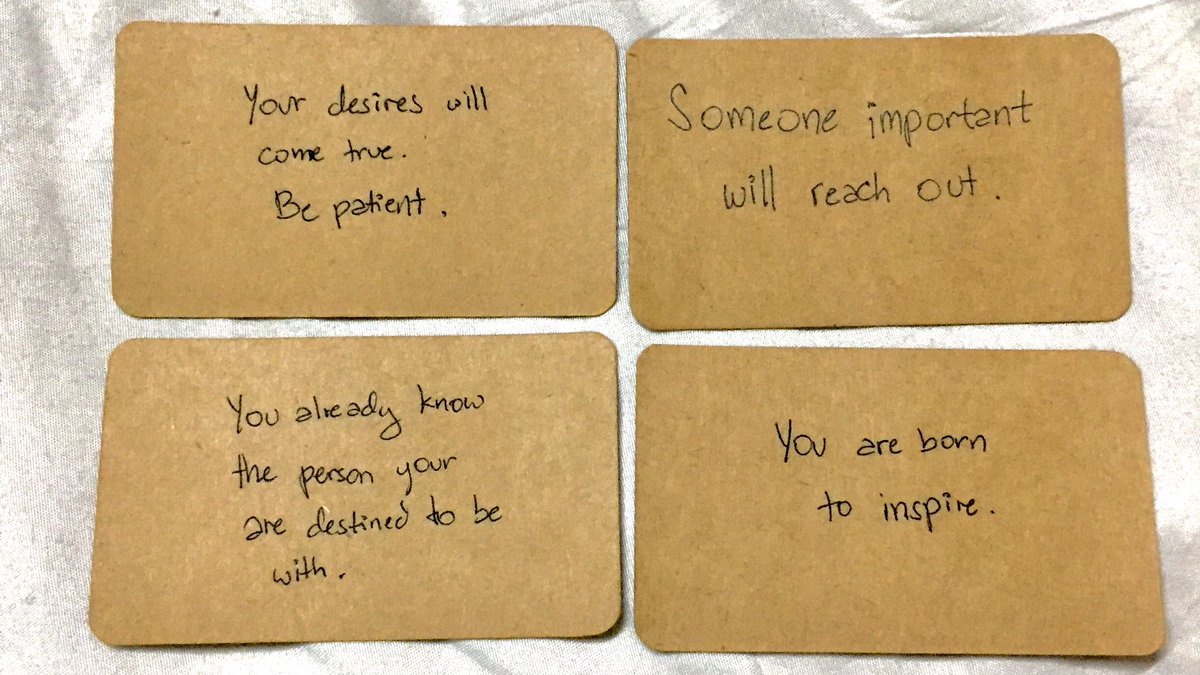 Your desires will
come true.
Be patient.
Someone important
will reach out.
You already know
the person your
are destined to be
with.
You are born
to inspire.